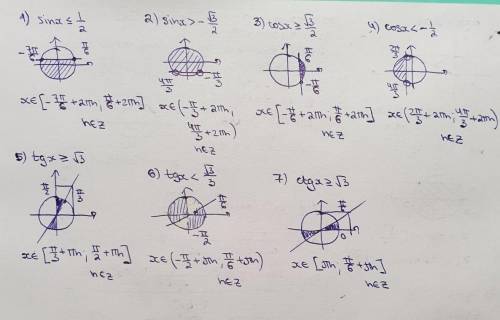 1) sinx ≤ 1/2
-7π/6
π/6
x∈[-7π/6+2πn; π/6+2πn]
n∈Z
2) sinx > -√3/2
4π/3
-π/3
x∈(-π/3+2πn;
4π/3+2πn)
n∈Z
3) cosx ≥ √3/2
π/6
-π/6
x∈[-π/6+2πn; π/6+2πn]
n∈Z
4) cosx < -1/2
2π/3
4π/3
x∈(2π/3+2πn; 4π/3+2πn)
n∈Z
5) tgx ≥ √3
π/2
π/3
x∈[π/3+πn; π/2+πn]
n∈Z
6) tgx < √3/3
π/6
-π/2
x∈(-π/2+πn; π/6+πn)
n∈Z
7) ctgx ≥ √3
π/6
0
x∈[πn; π/6+πn]
n∈Z